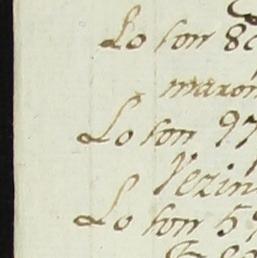 Lo son 80
maron
Lo son 97
Vezin
Lo son 59